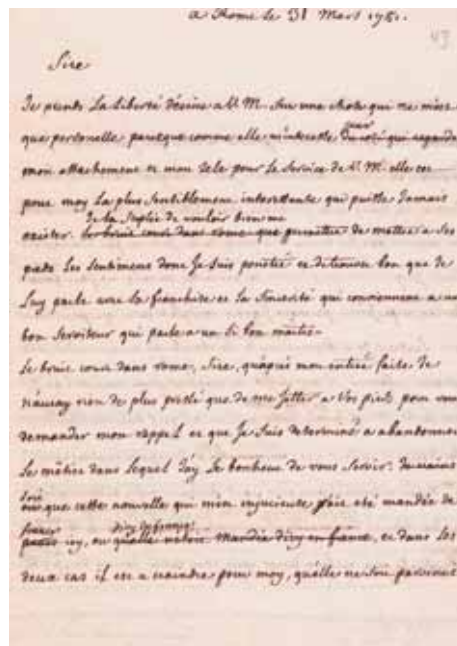 a Rome le 31 Mars 1751.
43
Sire
Je prends La liberté d'écrire a V. M. sur une chose qui ne m'est
que personelle parceque comme elle m'interesse du coté qui regarde
mon attachement et mon zele pour le service de V. M. elle est
pour moy la plus sensiblement interessante qui puisse Jamais
Je la suplie de vouloir bien me
exister. le bruit court dans rome que permettre de mettre a ses
pieds les sentimens dont Je suis penetré et de trouver bon que Je
luy parle avec la franchise et la sincerité qui conviennent a un
bon serviteur qui parle a un si bon maitre.
Le bruit court dans rome, Sire, qu'apres mon entrée faite Je
n'auray rien de plus pressé que de me Jetter a vos pieds pour vous
demander mon rappel et que Je suis determiné a abandonner
le métier dans lequel J'ay le bonheur de vous servir. Je crains
soit
que cette nouvelle qui m'est injurieuse n'ait eté mandée de
france icy, ou qu'elle mandée d'icy en france, et dans les
deux cas il est a craindre pour moy, qu'elle ne soit parvenue